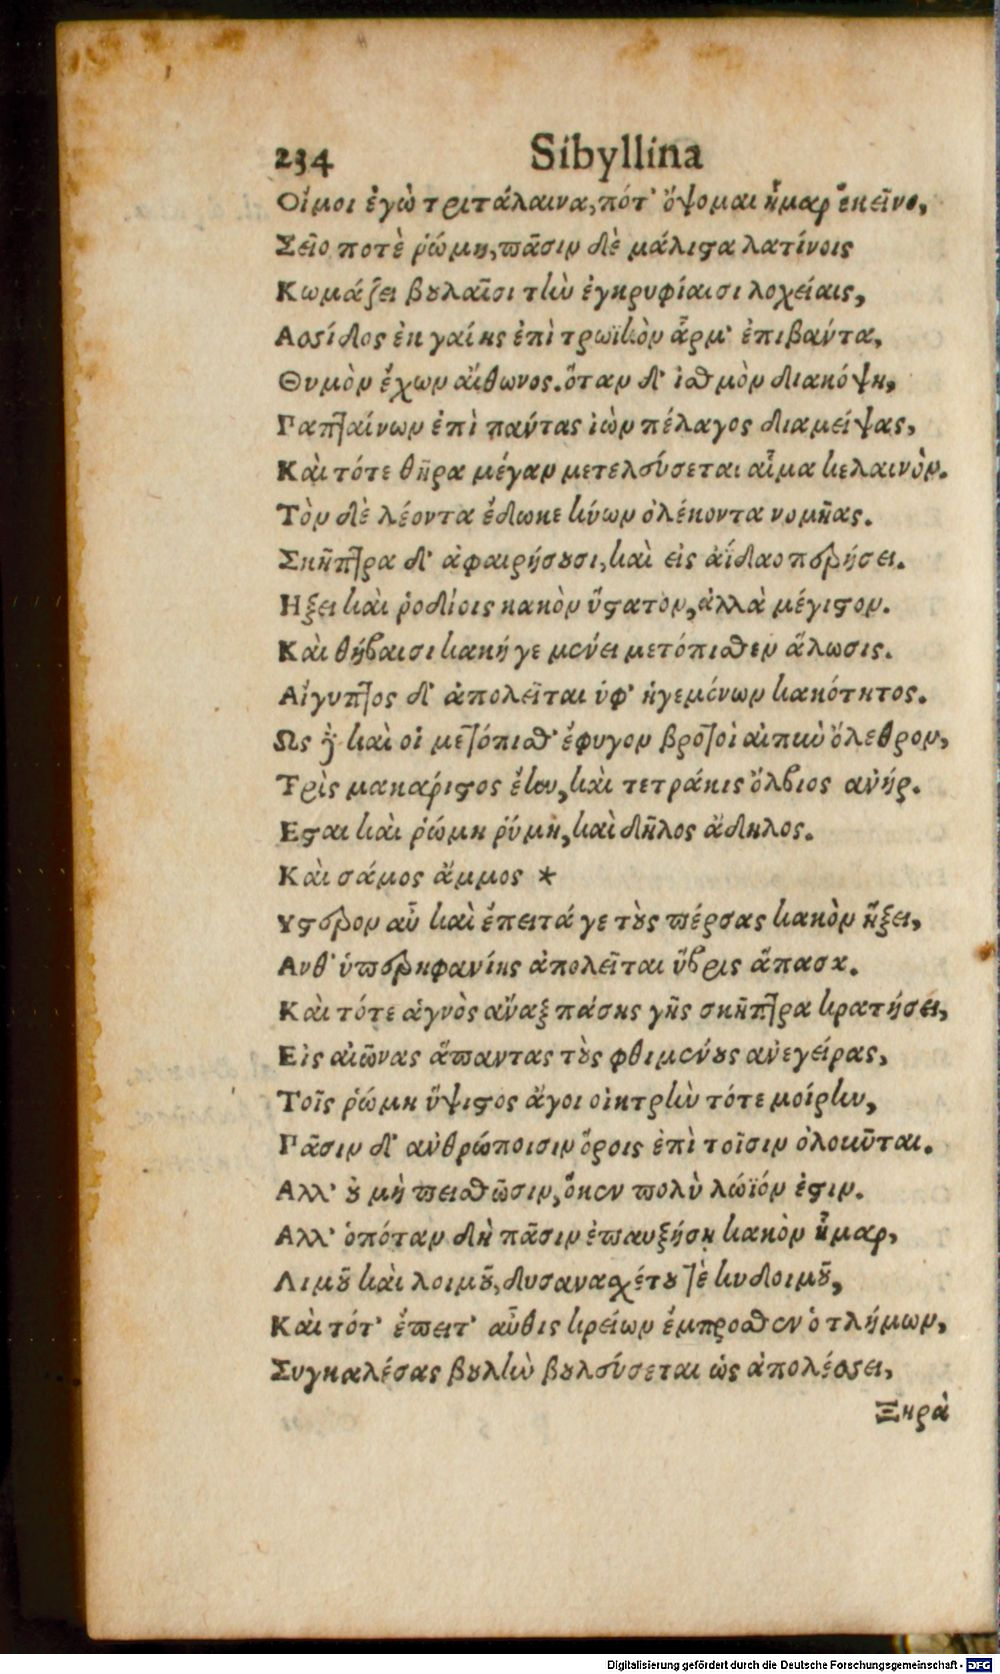 234 Sibyllina
Οἴμοι ἐγὼ τριτάλαινα, πότ' ὄψομαι ἦμαρ ἐκεῖνο,
Σεῖο ποτὲ ῥώμη, πᾶσιν δὲ μάλιστα λατίνοις
Κωμάζει βουλαῖσι τὴν ἐγκρυφίαισι λοχείαις,
Ασσίδος ἐκ γαίης ἐπὶ τρωϊκὸν ἅρμ' ἐπιβάντα,
Θυμὸν ἔχων αἴθωνος. ὅταν δ' ἰσθμὸν διακόψῃ,
Παπταίνων ἐπὶ παύτας ἰὼν πέλαγος διαμείψας,
Καὶ τότε θῆρα μέγαν μετελεύσεται αἷμα κελαινὸν.
Τὸν δὲ λέοντα ἔδωκε κύων ὀλέκοντα νομῆας.
Σκῆπτρα δ' ἀφαιρήσουσι, καὶ εἰς ἀΐδαο περήσει.
Ηξει καὶ ῥοδίοις κακὸν ὕστατον, ἀλλὰ μέγιστον.
Καὶ θήβαισι κακή γε μένει μετόπισθεν ἅλωσις.
Αἴγυπτος δ' ἀπολεῖται ὑφ' ἡγεμένων κακότητος.
Ως δὲ καὶ οἱ μετόπισθ' ἔφυγον βροτοὶ αἰπὺν ὄλεθρον,
Τρὶς μακάριστος ἔην, καὶ τετράκις ὄλβιος ανήρ.
Εσται καὶ ῥώμη ῥύμη, καὶ δῆλος ἄδηλος.
Καὶ σάμος ἄμμος *
Υστερον αὖ καὶ ἔπειτά γε τοὺς πέρσας κακὸν ἥξει,
Ανθ' ὑπερηφανίης ἀπολεῖται ὕβρις ἅπασα.
Καὶ τότε ἁγνὸς ἄναξ πάσης γῆς σκῆπτρα κρατήσει,
Εἰς αἰῶνας ἅπαντας τοὺς φθιμένους ἀνεγείρας,
Τοῖς ῥώμη ὕψιστος ἄγοι οἰκτρὴν τότε μοίρην,
Πᾶσιν δ' ἀνθρώποισιν ὅροις ἐπὶ τοῖσιν ὀλοῦνται.
Αλλ' οὐ μὴ πεισθῶσιν, ὅκεν πολὺ λώϊόν ἐστιν.
Αλλ' ὁπόταν δὴ πᾶσιν ἐπαυξήσῃ κακὸν ἦμαρ,
Λιμοῦ καὶ λοιμοῦ, δυσανασχέτου τὲ κυδοιμοῦ,
Καὶ τότ' ἔπειτ' αὖθις κρείων ἔμπροσθεν ὁ τλήμων,
Συγκαλέσας βουλὴν βουλεύσεται ὡς ἀπολέσσει,
Ξηρὰ
Digitalisierung gefördert durch die Deutsche Forschungsgemeinschaft - DFG